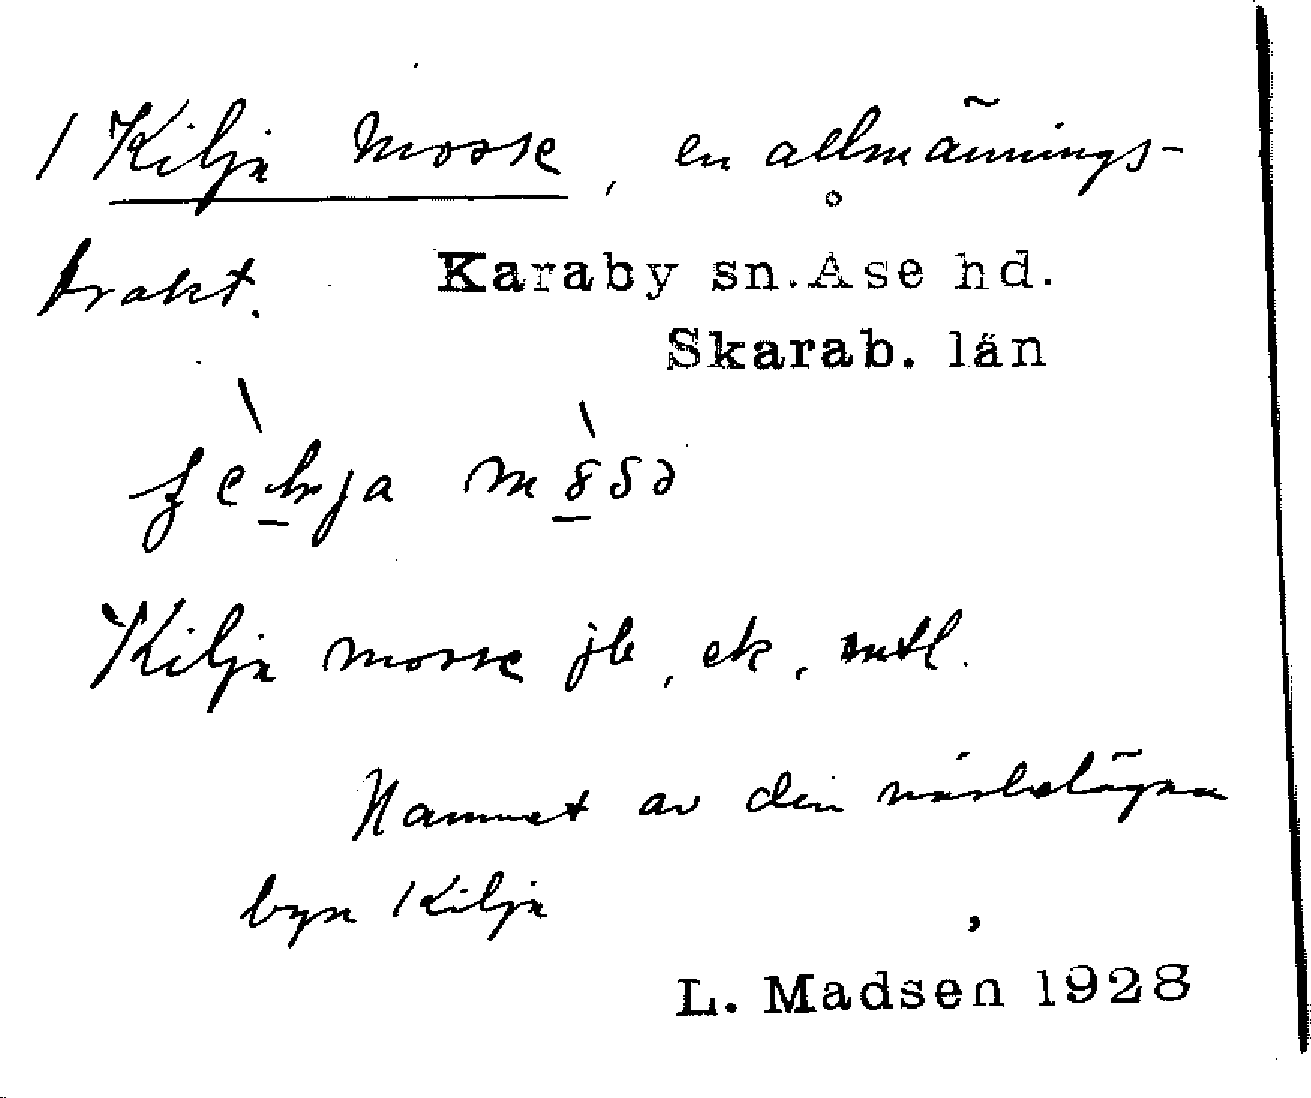 1 Kilja mosse, en allmännings-
trakt. Karaby sn. Åse hd.
Skarab. län
Kilja mosse jb, ek, mtl.
Namnet av den närbelägna
byn Kilja
L. Madsen 1928